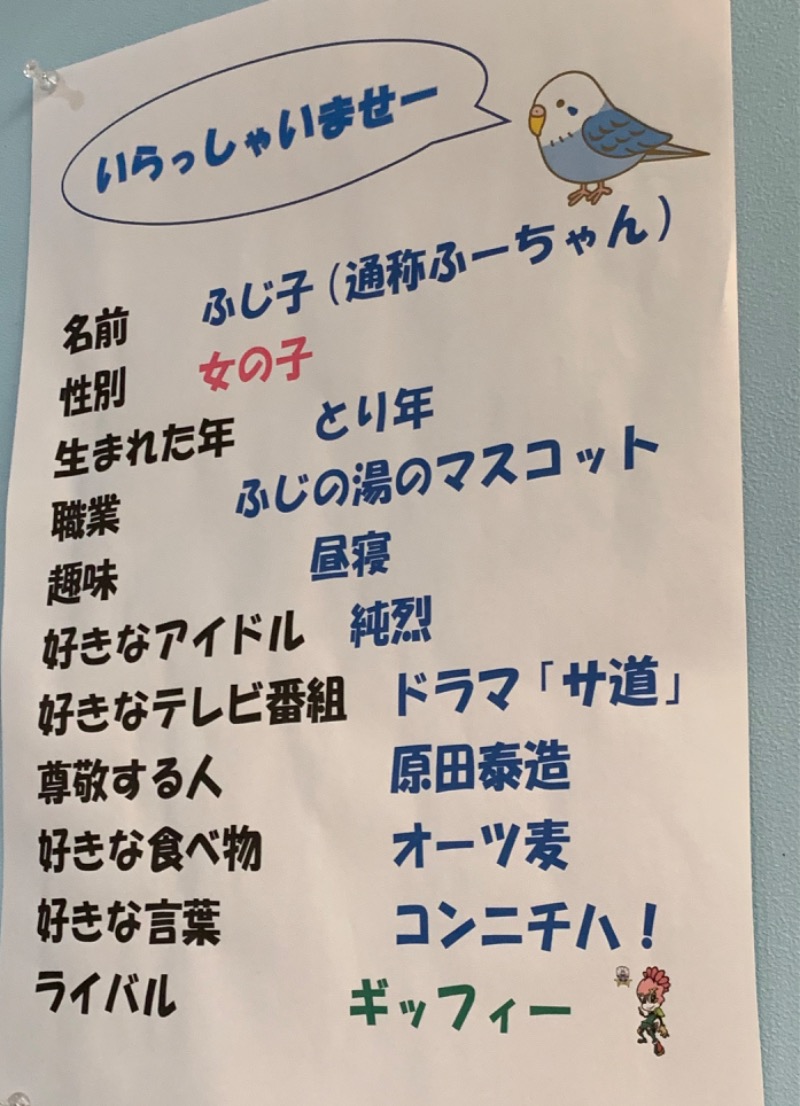 いらっしゃいませー
名前 ふじ子(通称ふーちゃん)
性別 女の子
生まれた年 とり年
職業 ふじの湯のマスコット
趣味 昼寝
好きなアイドル 純烈
好きなテレビ番組 ドラマ「サ道」
尊敬する人 原田泰造
好きな食べ物 オーツ麦
好きな言葉 コンニチハ!
ライバル ギッフィー